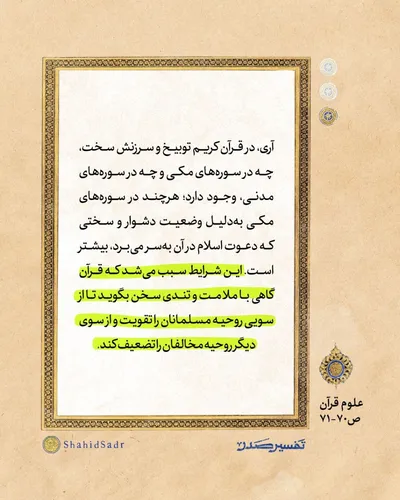 آری، در قرآن کریم توبیخ و سرزنش سخت،
چه در سوره‌های مکی و چه در سوره‌های
مدنی، وجود دارد؛ هرچند در سوره‌های
مکی به‌دلیل وضعیت دشوار و سختی
که دعوت اسلام در آن به‌سر می‌برد، بیشتر
است. این شرایط سبب می‌شد که قرآن
گاهی با ملامت و تندی سخن بگوید تا از
سویی روحیه مسلمانان را تقویت و از سوی
دیگر روحیه مخالفان را تضعیف کند.
علوم قرآن
ص۷۰-۷۱
تفسیر صدر
ShahidSadr